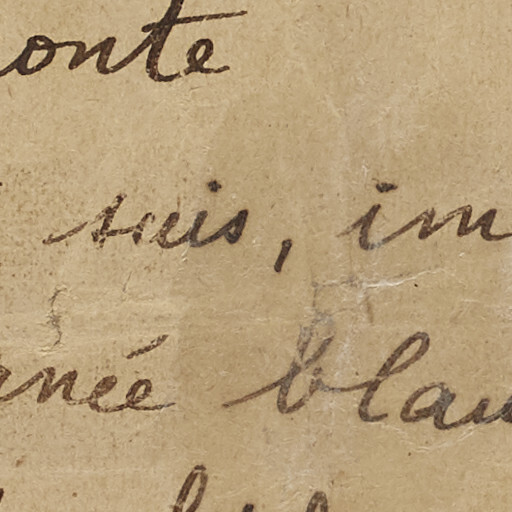 onte
suis, im
née blau